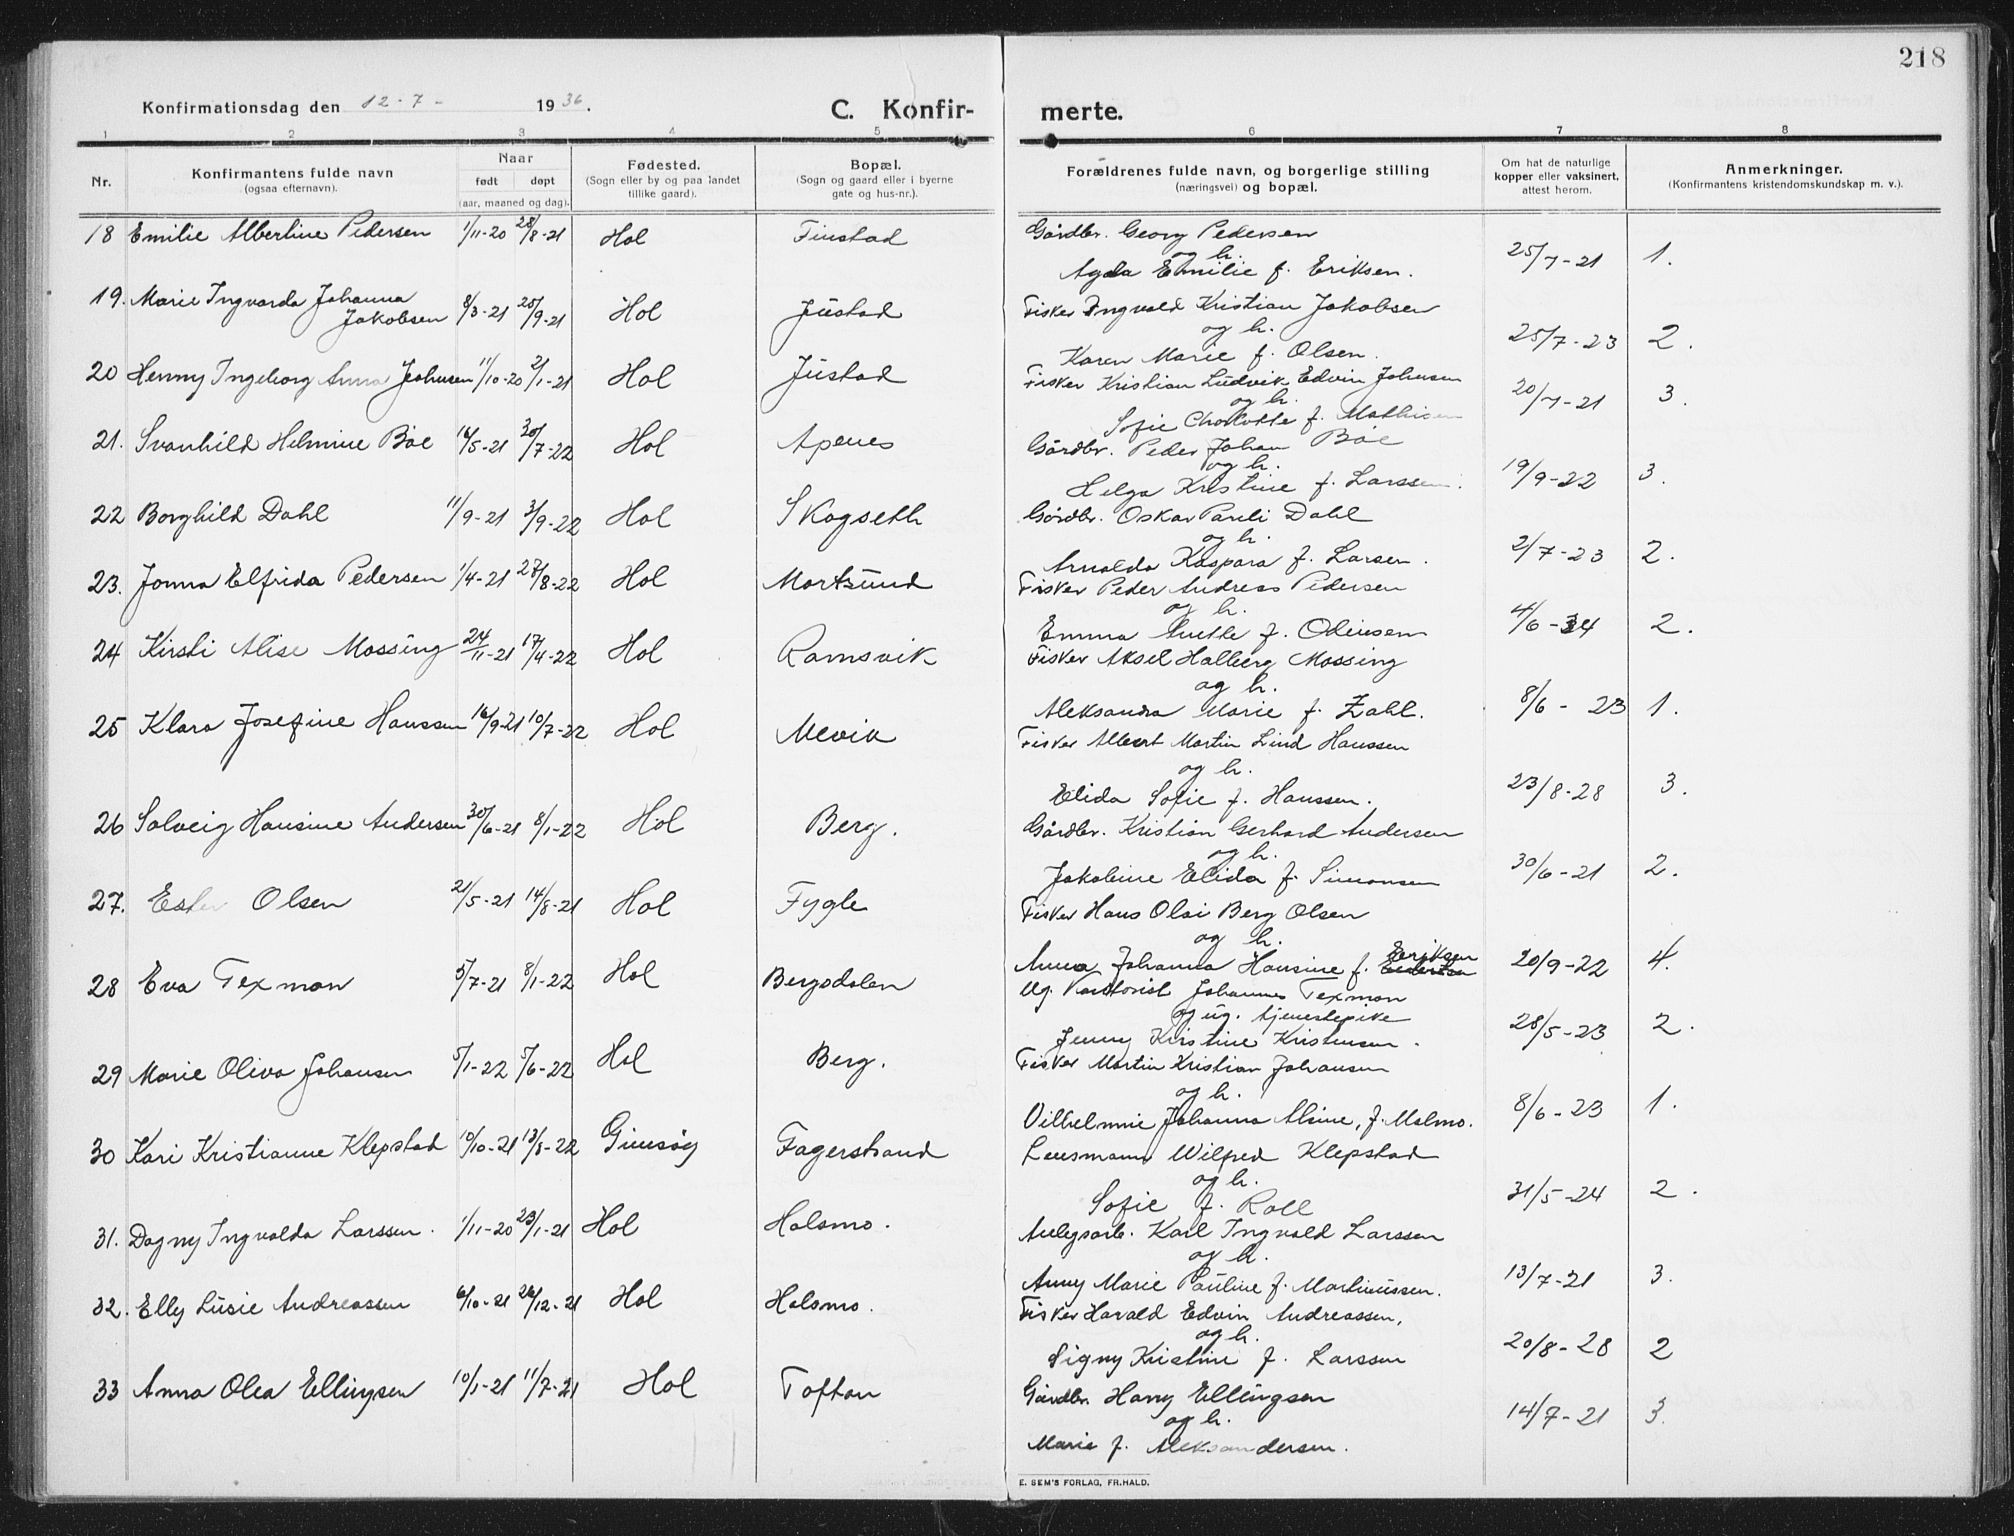 218
Konfirmationsdag den 12-7- 1936.
C. Konfir-
merte.
1 2 3 4 5 6 7 8
Nr.
Konfirmantens fulde navn
(ogsaa efternavn).
Naar
født døpt
(aar, maaned og dag).
Fødested.
(Sogn eller by og paa landet
tillike gaard).
Bopæl.
(Sogn og gaard eller i byerne
gate og hus-nr.).
Forældrenes fulde navn, og borgerlige stilling
(næringsvei) og bopæl.
Om hat de naturlige
kopper eller vaksinert,
attest herom.
Anmerkninger.
(Konfirmantens kristendomskundskap m. v.).
18 Emilie Albertine Pedersen 1/11-20 28/8-21 Hol Finstad Gårdbr. Georg Pedersen
og h.
Agda Emilie f. Eriksen. 25/7-21 1.
19. Marie Ingvarda Johanna
Jakobsen 8/3-21 25/9-21 Hol Justad Fisker Ingvald Kristian Jakobsen
og h.
Karen Marie f. Olsen. 25/7-23 2.
20 Henny Ingeborg Anna Johnsen 11/10-20 2/1-21 Hol Justad Fisker Kristian Ludvik Edvin Johnsen
og h.
Sofie Charlotte f. Mathisen 20/7-21 3.
21. Svanhild Helmine Böe 16/5-21 30/7-22 Hol Apenes Gårdbr. Peder Johan Böe
og h.
Helga Kristine f. Larssen. 19/9-22 3.
22 Borghild Dahl 11/9-21 3/9-22 Hol Skogseth Gårdbr. Oskar Pareli Dahl
og h.
Arnalda Kaspara f. Larsen. 2/7-23 2.
23. Jonna Elfrida Pedersen 1/4-21 27/8-22 Hol Mortsund Fisker Peder Andreas Pedersen
og h.
Emma f. Odinsen 4/6-34 2.
24 Kirsti Alise Mossing 24/11-21 17/4-22 Hol Ramsvik Fisker Aksel Halberg Mossing
og h.
Aleksandra Marie f. Zahl. 8/6-23 1.
25 Klara Josefine Hanssen 16/9-21 10/7-22 Hol Mevik Fisker Albert Martin Lind Hanssen
og h.
Elida Sofie f. Hanssen. 23/8-28 3.
26 Solveig Hansine Andersen 30/6-21 8/1-22 Hol Berg. Gårdbr. Kristian Gerhard Andersen
og h.
Jakobine Elida f. Simonsen 30/6-21 2.
27. Ester Olsen 21/5-21 14/8-21 Hol Fygle Fisker Hans Olai Berg Olsen
og h.
Anna Johanna Hansine f. Eriksen 20/9-22 4.
28 Eva Texmon 5/7-21 8/1-22 Hol Bergsdalen Ug. Johannes Texmon
og ug. tjenestepike
Jenny Kristine Kristensen. 28/5-23 2.
29 Marie Oliva Johansen 5/1-22 5/6-22 Hol Berg. Fisker Martin Kristian Johansen
og h.
Vilhelmine Johanna Alsine, f. Malmo. 8/6-23 1.
30 Kari Kristianne Klepstad 10/10-21 13/8-22 Gimsøy Fagerstrand Lensmann Wilfred Klepstad
og h.
Sofie f. Roll 31/5-24 2.
31. Dagny Ingvalda Larssen. 1/11-20 23/1-21 Hol Holsmo. Anlegsarb. Karl Ingvald Larssen
og h.
Anny Marie Pauline f. Martinussen. 13/7-21 3.
32. Elly Lusie Andreassen 6/10-21 26/12-21 Hol Holsmo. Fisker Harald Edvin Andreassen,
og h.
Signy Kristine f. Larssen 20/8-28 2
33 Anna Olea Ellingsen 10/1-21 11/7-21 Hol Toftan Gårdbr. Harry Ellingsen
og h.
Marie f. Aleksandersen. 14/7-21 3.
E. SEM'S FORLAG, FR.HALD.